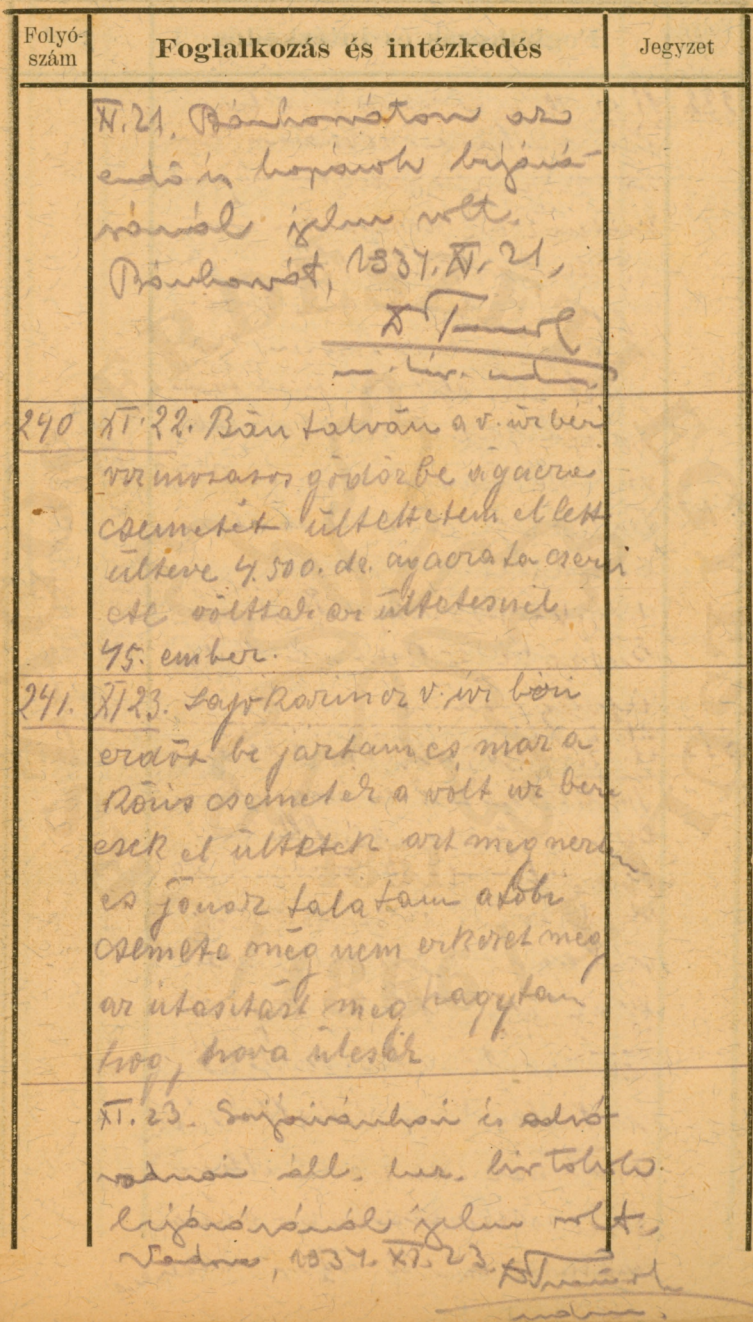 Folyó-
szám
Foglalkozás és intézkedés
Jegyzet
XI. 21. Bánhorváton az
erdő és kopárok bejárá-
sánál jelen volt.
Bánhorvát, 1937. XI. 21,
240 XI. 22. Bán falván a v. úrbéri
gödörbe ágácza
csemetét ültettetem el lett
ülteve 4.500. db. agacza
voltak az ültetesnél
45. ember.
241. XI 23. Sajo Kazincz v. úr béri
erdőt be jartam és már a
Kőris csemetek a vólt úr béri
esek el ültetek azt megneztem
es jónak talatam a töbi
csemete még nem erkezet meg
az utasitást meg hagytam
hogy hova ülesék
XI. 23. Sajóivánkai és sajó-
vadnai áll. birtokok
bejárásánál jelen volt.
Vadna, 1937. XI. 23.